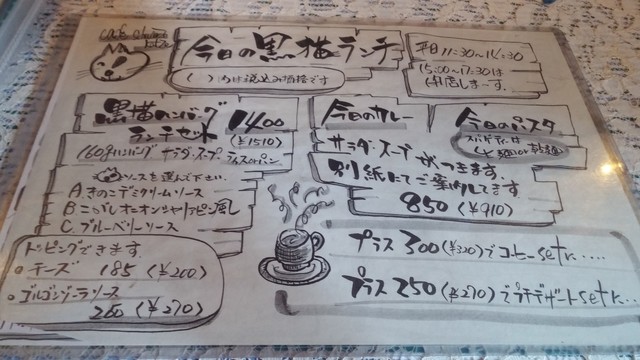 今日の黒猫ランチ
( )内は税込み価格です
平日11:30〜14:30
15:00〜17:30は
閉店します。
黒猫ハンバーグ
ランチセット
1400
(¥1510)
160gハンバーグ サラダ・スープ・ライスorパン
ソースを選んで下さい。
Aきのこデミクリームソース
Bこがしオニオンシャリアピン風
C.ブルーベリーソース
トッピングできます。
・チーズ 185 (¥200)
・ゴルゴンゾーラソース
250 (¥270)
今日のカレー
今日のパスタ
サラダ・スープがつきます。
別紙にてご案内してます
850 (¥910)
プラス 300(¥320)でコーヒーset....
プラス 250 (¥270)でプチデザートset....